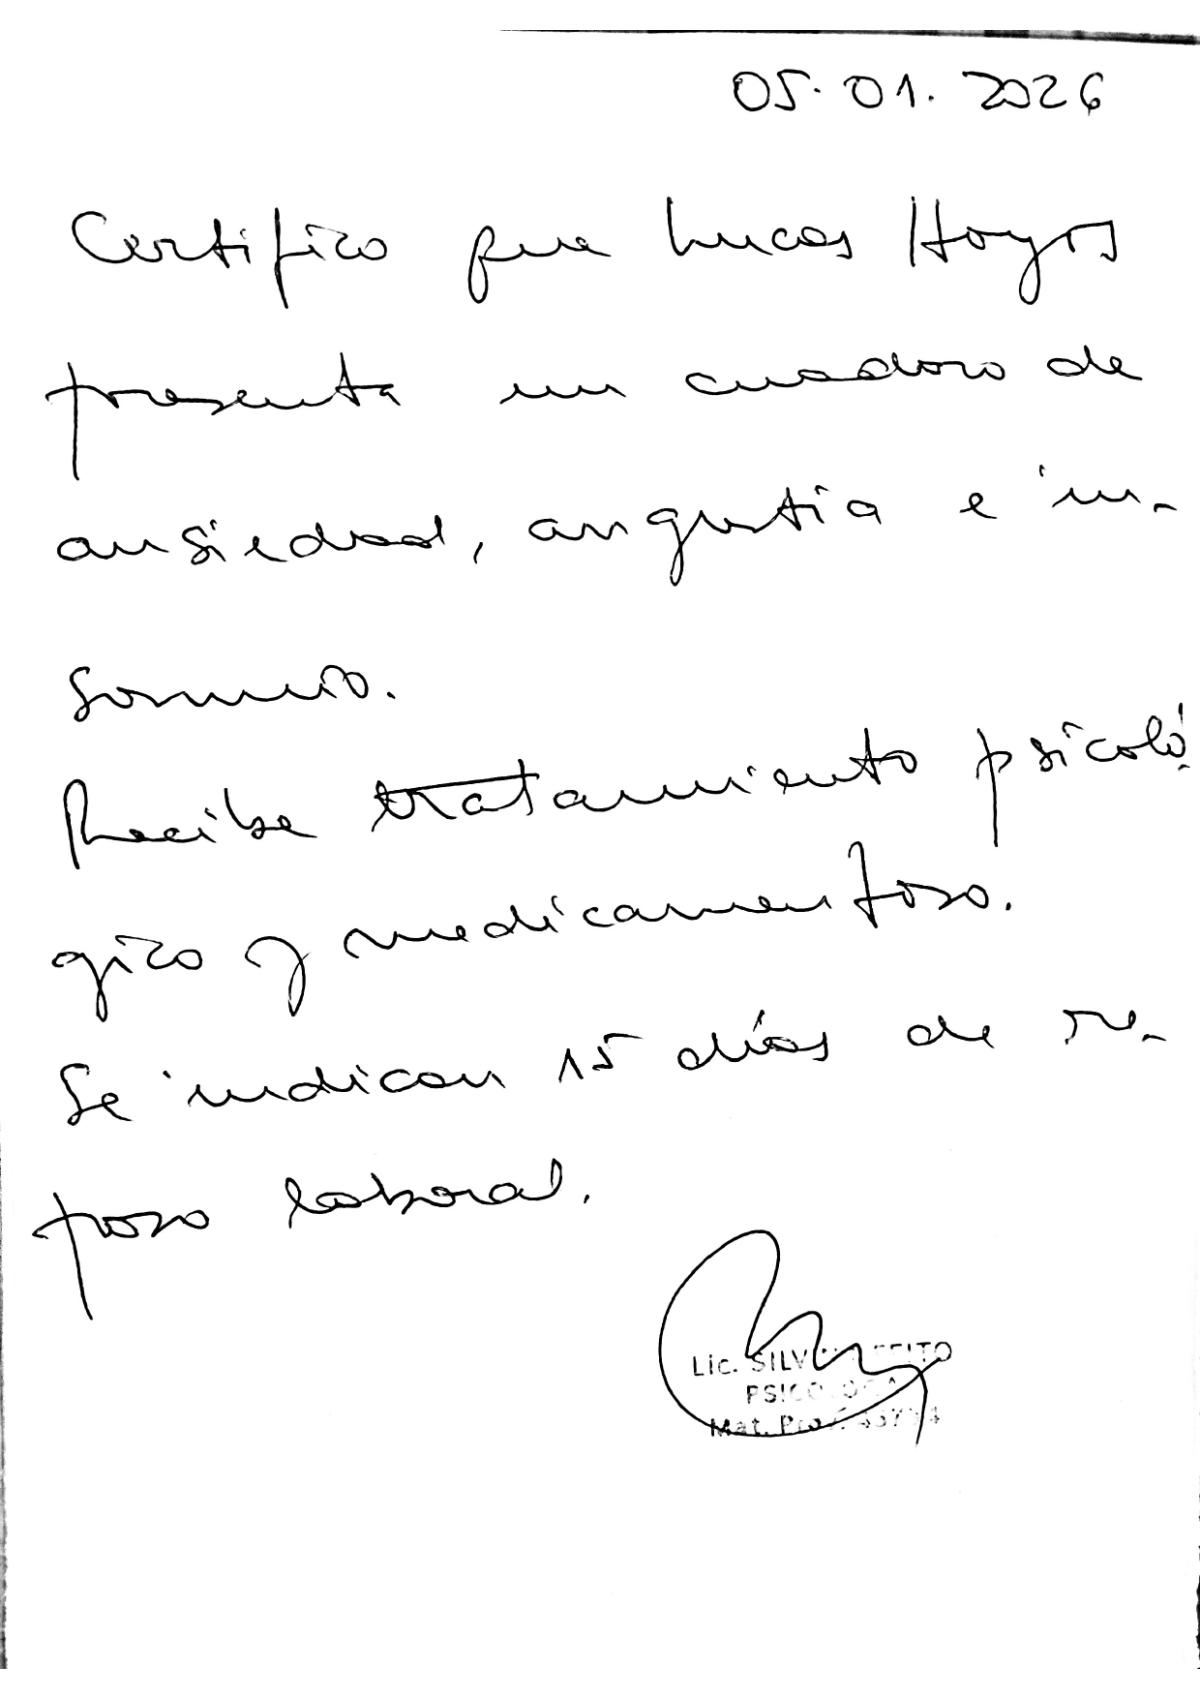 05.01.2026
Certifico que Lucas Hoyos
presenta un cuadro de
ansiedad, angustia e in-
somnio.
Recibe tratamiento psicoló
gico y medicamentoso.
Se indican 15 días de re-
poso laboral.
Lic.
PSICOLOGA
Mat. Prov.